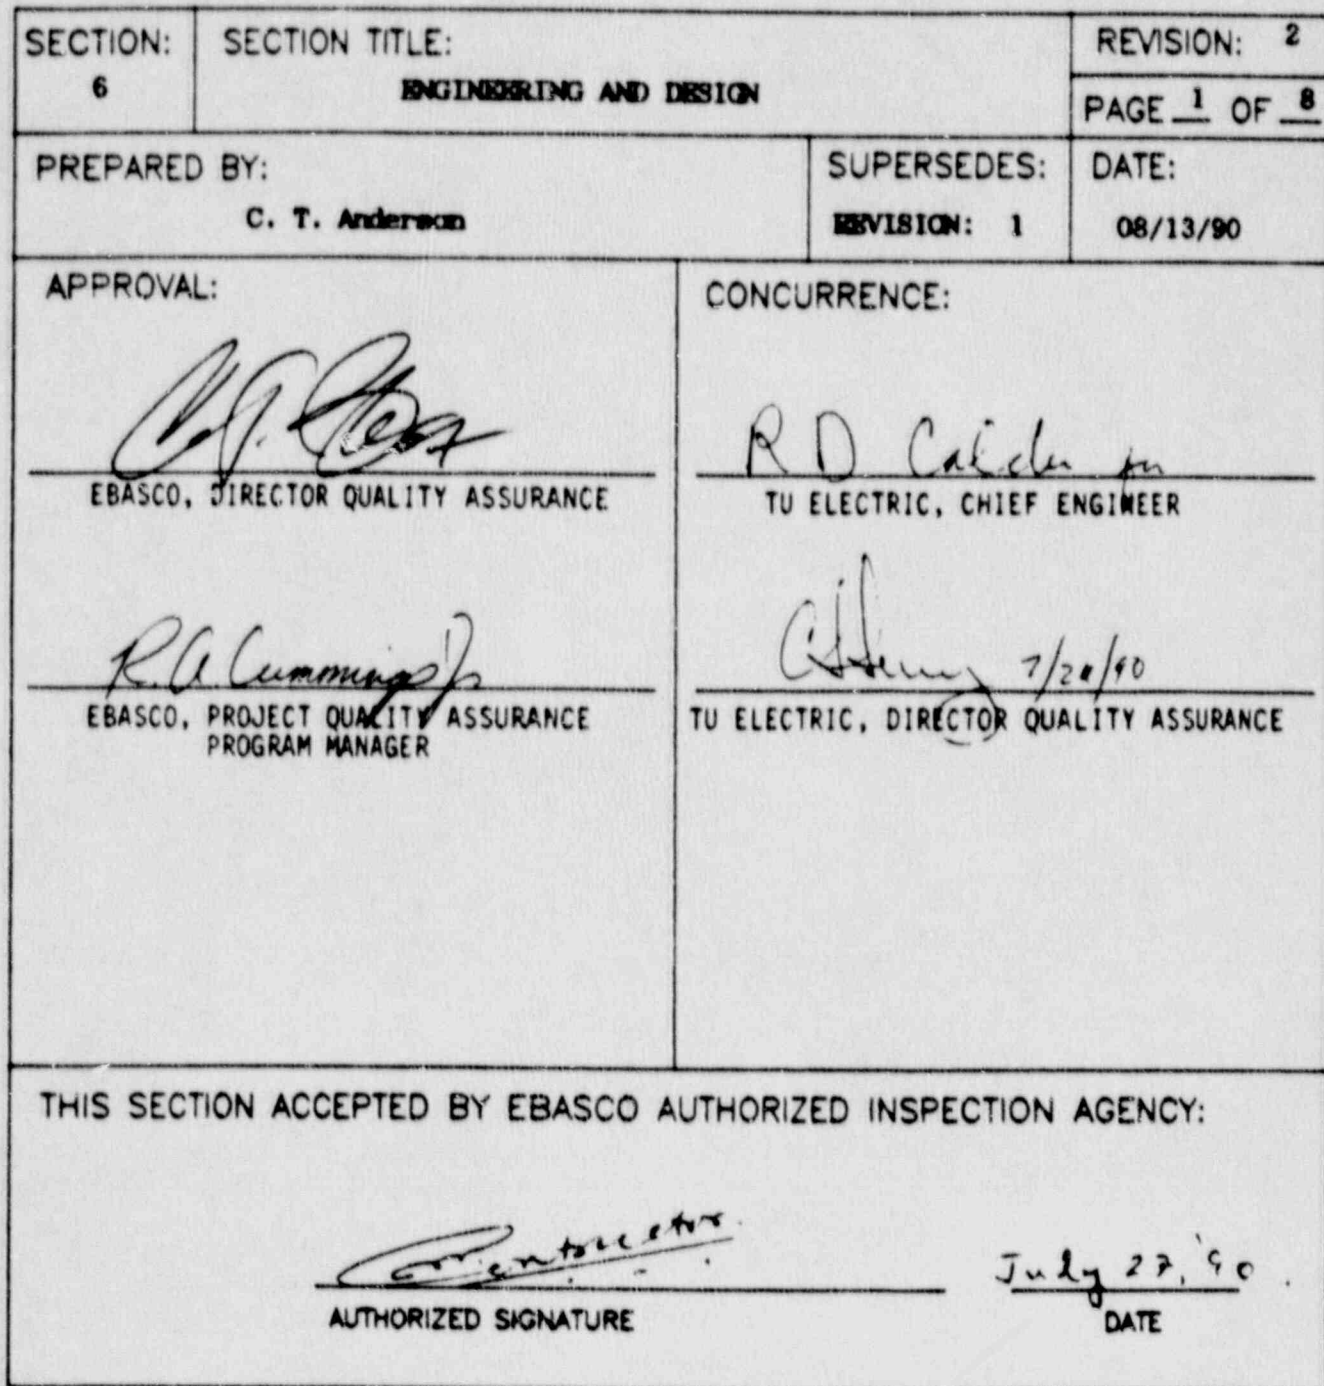 SECTION:
6
SECTION TITLE:
ENGINEERING AND DESIGN
REVISION: 2
PAGE 1 OF 8
PREPARED BY:
C. T. Anderson
SUPERSEDES:
REVISION: 1
DATE:
08/13/90
APPROVAL:
EBASCO, DIRECTOR QUALITY ASSURANCE
R. A Cummings Jr
EBASCO, PROJECT QUALITY ASSURANCE
PROGRAM MANAGER
CONCURRENCE:
R D
TU ELECTRIC, CHIEF ENGINEER
TU ELECTRIC, DIRECTOR QUALITY ASSURANCE
THIS SECTION ACCEPTED BY EBASCO AUTHORIZED INSPECTION AGENCY:
July 27, '90
AUTHORIZED SIGNATURE
DATE